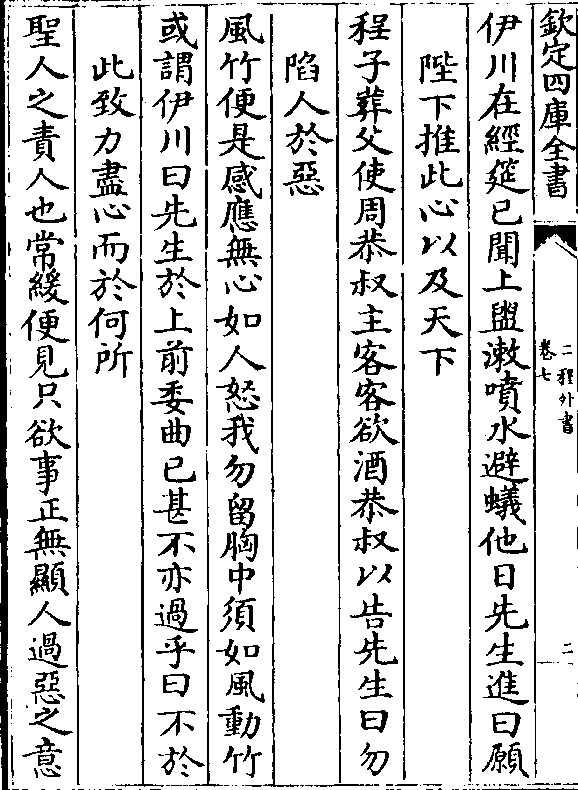 欽定四庫全書
二程外書
卷七
二
伊川在經筵已聞上盥漱噴水避蟻他日先生進曰願
陛下推此心以及天下
程子葬父使周恭叔主客客欲酒恭叔以告先生曰勿
陷人於惡
風竹便是感應無心如人怒我勿留胸中須如風動竹
或謂伊川曰先生於上前委曲已甚不亦過乎曰不於
此致力盡心而於何所
聖人之責人也常緩便見只欲事正無顯人過惡之意